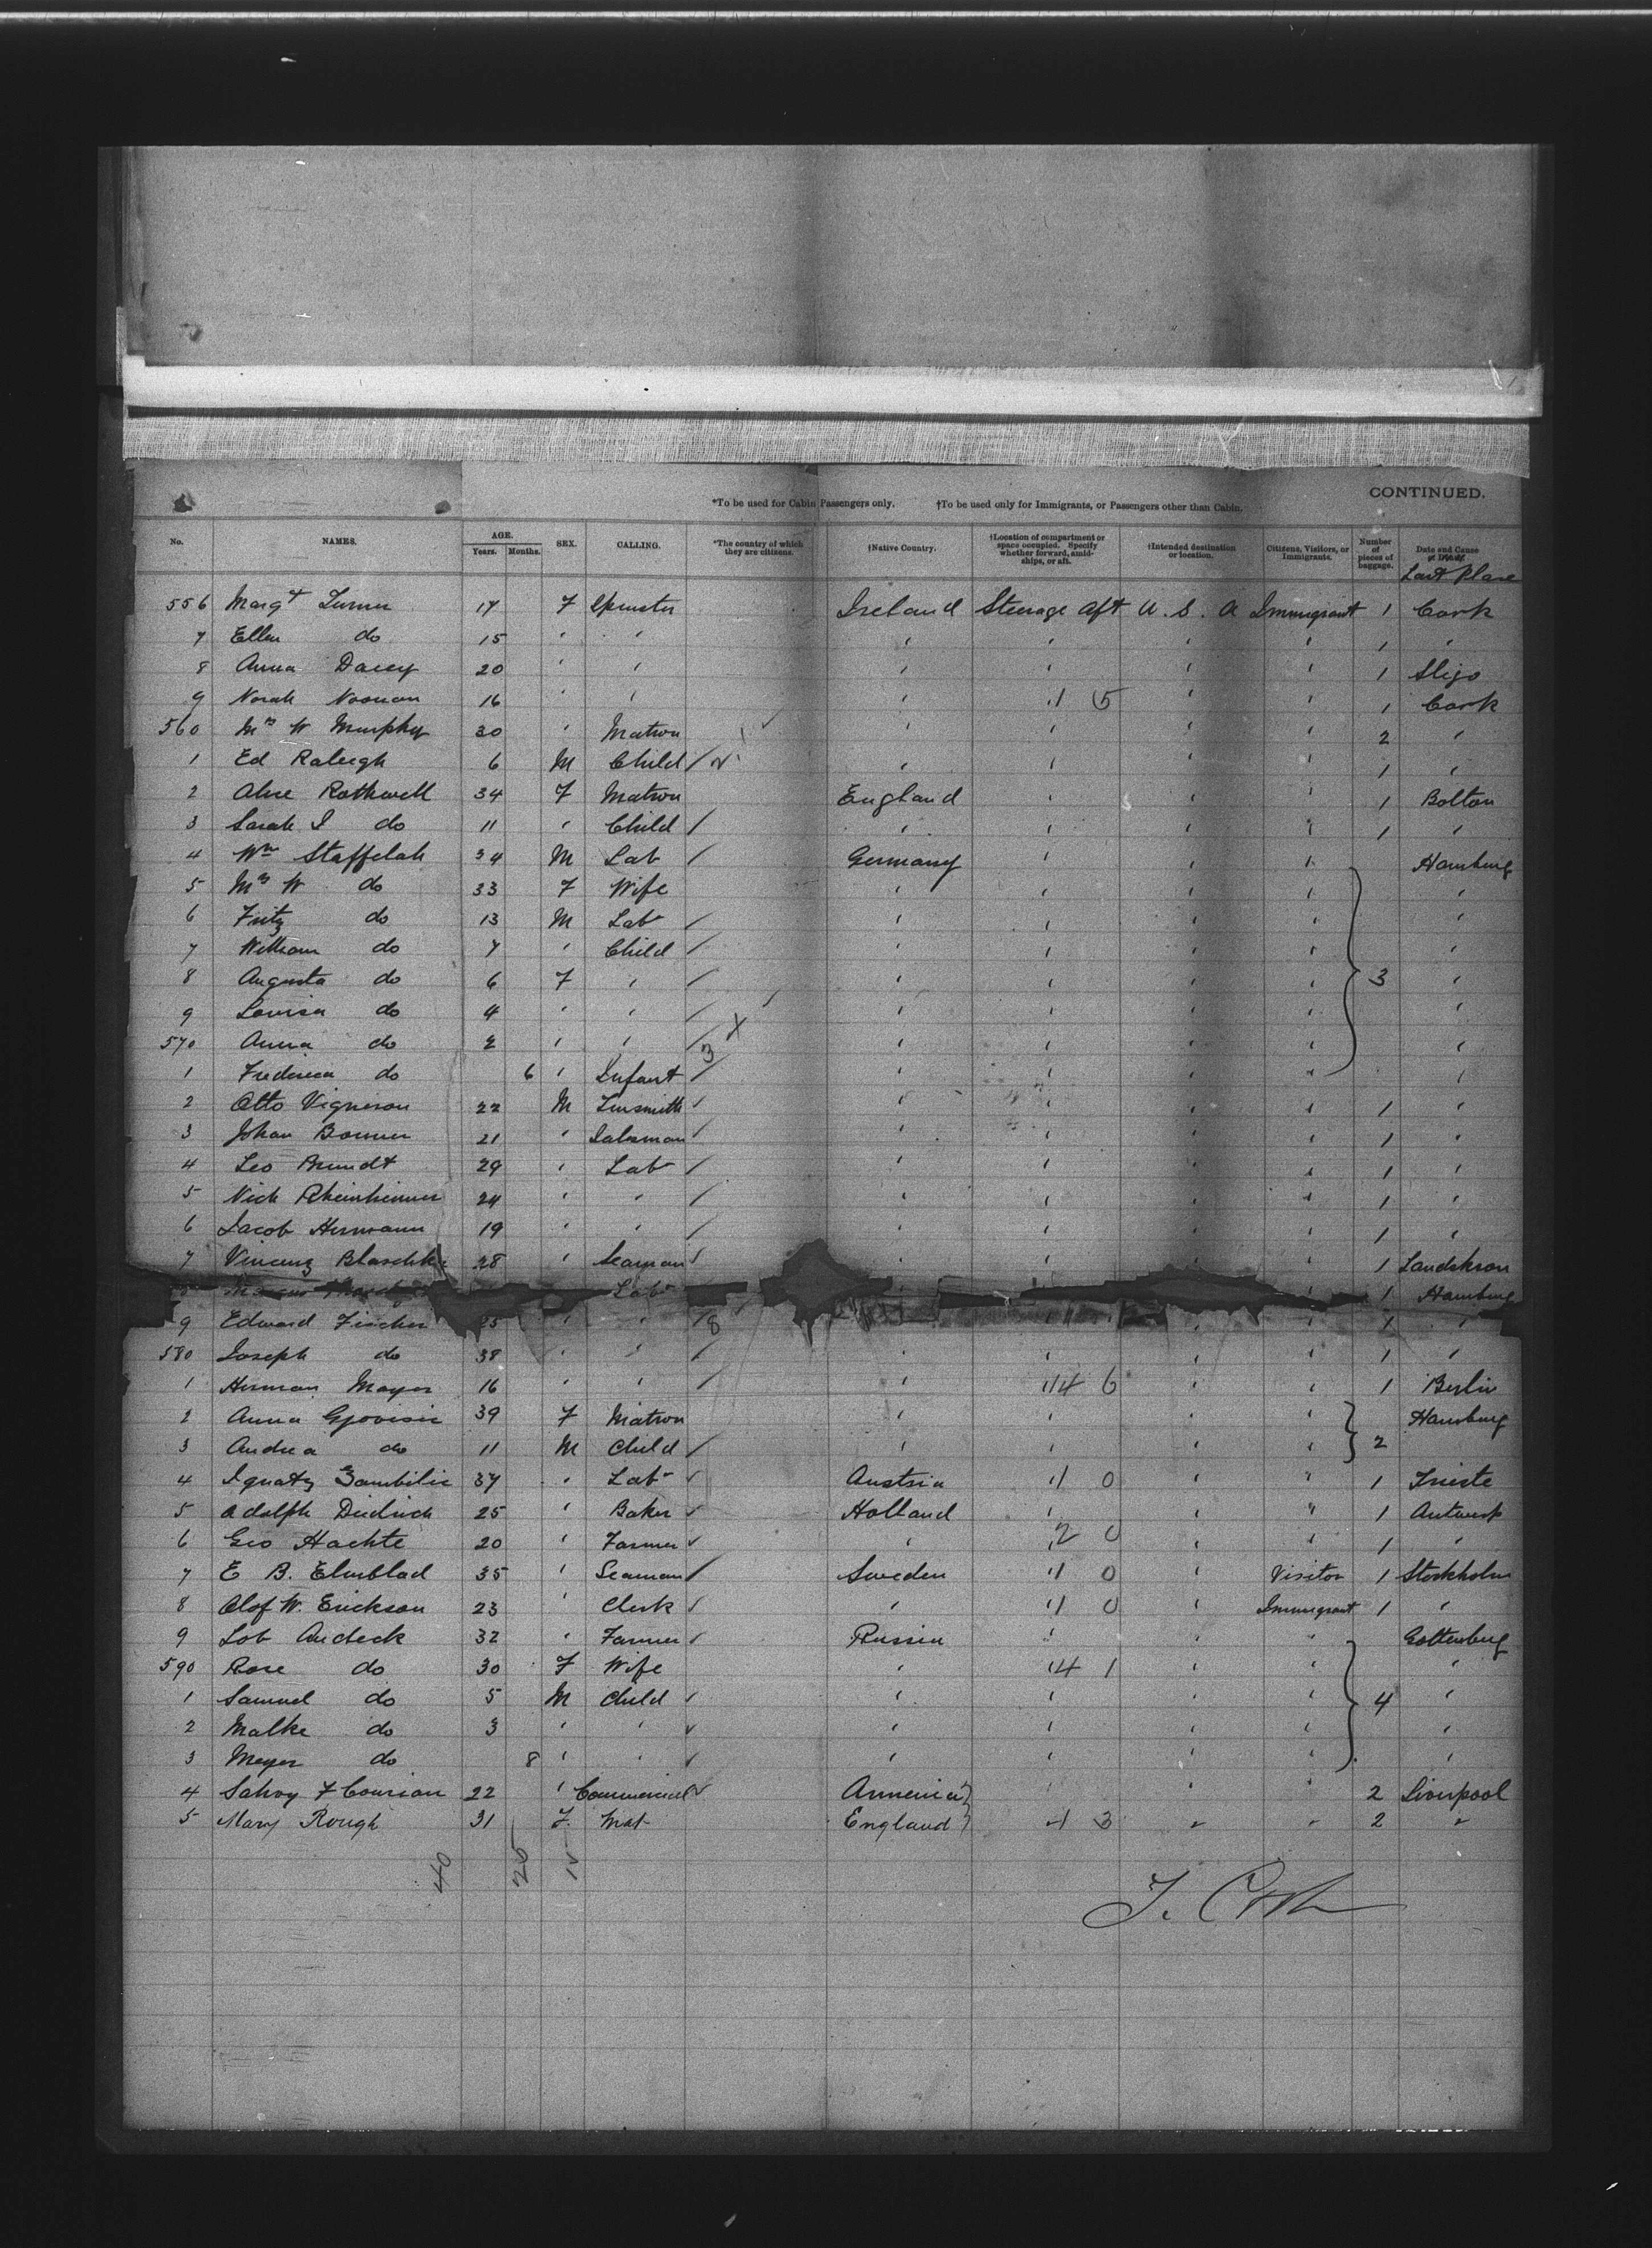 CONTINUED.
*To be used for Cabin Passengers only. †To be used only for Immigrants, or Passengers other than Cabin.
No. NAMES. AGE. Years. Months. SEX. CALLING. *The country of which they are citizens. †Native Country. †Location of compartment or space occupied. Specify whether forward, amidships, or aft. †Intended destination or location. Citizens, Visitors, or Immigrants. Number of pieces of baggage. Date and Cause Last Place
556 Margt Turner 17 F Spinster Ireland Steerage Aft U.S.A Immigrant 1 Cork
7 Ellen do 15 ' ' ' ' ' 1 '
8 Anna Dacey 20 ' ' ' ' ' ' 1 Sligo
9 Norah Noonan 16 ' ' ' 1 5 ' ' 1 Cork
560 Mrs W Murphy 30 ' Matron ' ' ' ' 2 '
1 Ed Raleigh 6 M Child / ' ' ' ' 1 '
2 Alice Rothwell 34 F Matron England ' ' ' 1 Bolton
3 Sarah I do 11 ' Child / ' ' ' ' 1 '
4 Wm Staffelah 34 M Lab / Germany ' ' Hamburg
5 Mrs W do 33 F Wife ' ' ' ' '
6 Fritz do 13 M Lab / ' ' ' ' '
7 William do 7 ' Child / ' ' ' ' '
8 Augusta do 6 F ' / ' ' ' ' 3 '
9 Louisa do 4 ' ' / ' ' ' ' '
570 Anna do 2 ' ' / 3 X ' ' ' ' '
1 Frederica do 6 ' Infant / ' ' ' ' '
2 Otto Vigneron 22 M Tinsmith ' ' ' ' 1 '
3 Johan Bonner 21 ' Salesman ' ' ' ' 1 '
4 Leo Brundt 29 ' Lab / ' ' ' ' 1 '
5 Nick Rheinheimer 24 ' ' / ' ' ' ' 1 '
6 Jacob Hermann 19 ' ' / ' ' ' ' 1 '
7 Vincenz Blaschke 28 ' Seaman ' ' ' ' 1 Landskron
Lab ' 1 Hamburg
9 Edward Fischer 25 ' ' / 8 ' ' 1 '
580 Joseph do 38 ' ' / ' ' ' ' 1 '
1 Herman Mayer 16 ' ' / ' 14 6 ' ' 1 Berlin
2 Anna Gjovisic 39 F Matron ' ' ' ' Hamburg
3 Andrea do 11 M Child / ' ' ' ' 2
4 Ignatz Zambilic 37 ' Lab Austria 1 0 " 1 Trieste
5 Adolph Diedrich 25 ' Baker Holland ' ' " 1 Antwerp
6 Geo Hachte 20 ' Farmer ' 2 0 ' ' 1 '
7 E B. Elmblad 35 ' Seaman / Sweden 1 0 ' Visitor 1 Stockholm
8 Olof W. Erickson 23 ' Clerk ' 1 0 ' Immigrant 1 '
9 Lob Audeck 32 ' Farmer Russia ' ' ' Gottenburg
590 Rose do 30 F Wife ' 4 1 ' ' '
1 Samuel do 5 M Child ' ' ' ' 4 '
2 Malke do 3 ' ' ' ' ' ' '
3 Meyer do 8 ' ' ' ' ' ' '
4 22 ' Commercial Armenia ' ' ' 2 Liverpool
5 Mary Rough 31 F. Mat England 1 3 " " 2 "
40 25 15